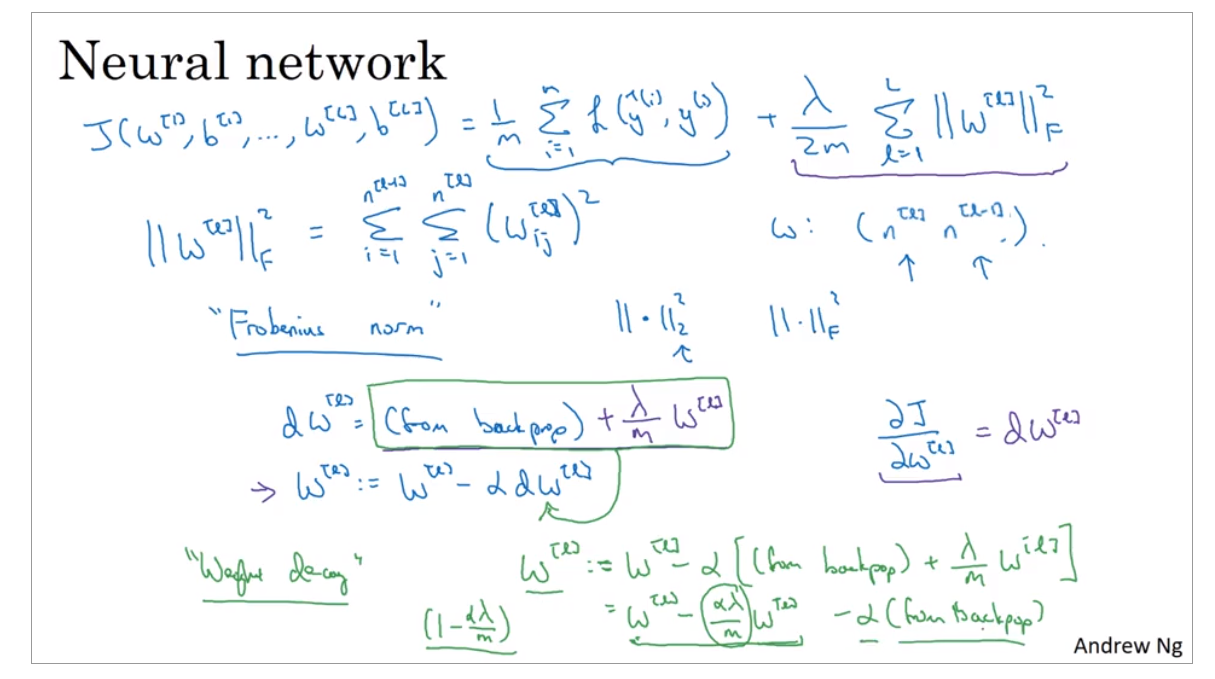 Neural network
J(w^[1], b^[1], ..., w^[L], b^[L]) = 1/m ∑_{i=1}^{n} L(ŷ^(i), y^(i)) + λ/2m ∑_{l=1}^{L} ||w^[l]||²_F
||w^[l]||²_F = ∑_{i=1}^{n^[l-1]} ∑_{j=1}^{n^[l]} (w_ij^[l])² w: (n^[l] n^[l-1]).
"Frobenius norm" ||·||²_2 ||·||²_F
dw^[l] = (from backprop) + λ/m w^[l] ∂J/∂w^[l] = dw^[l]
→ w^[l] := w^[l] - α dw^[l]
"Weight decay" w^[l] := w^[l] - α [(from backpop) + λ/m w^[l]]
(1 - αλ/m) = w^[l] - (αλ/m) w^[l] - α (from backpop)
Andrew Ng